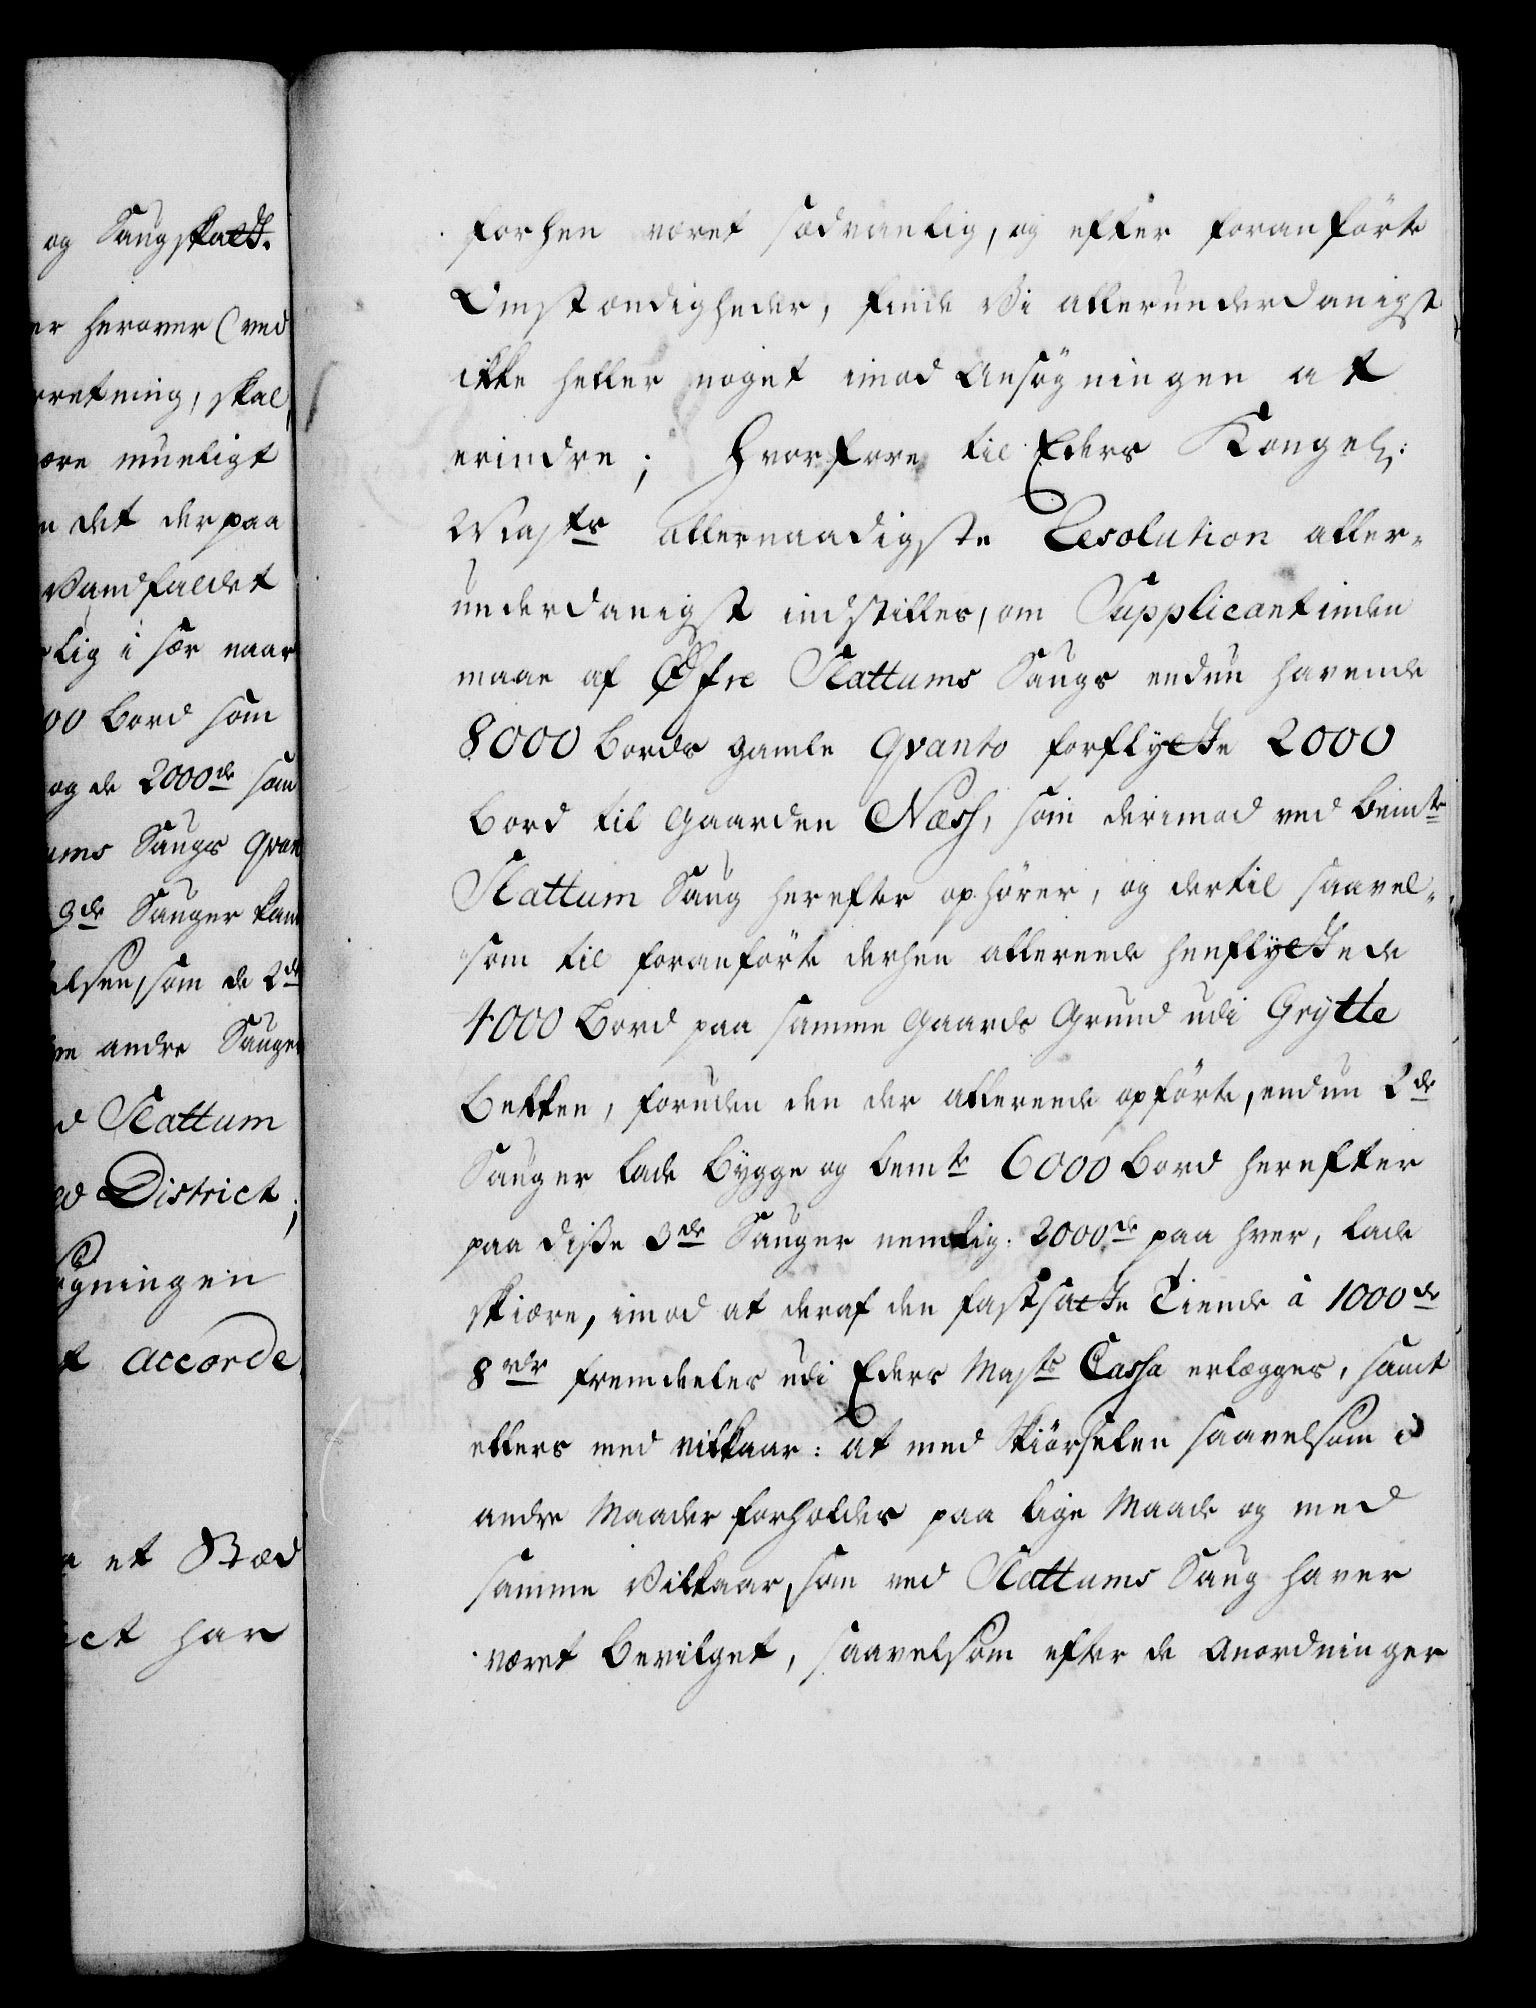 og Saugskatt.
er herover (ved
rretning, skal
ære mueligt
n det derpaa
Vandfaldet
lig i sær naar
00 Bord som
og de 2000de som
ums Saugs Qvan
3de Sauger kand
elsen, som de 2de
andre Sauger
d Slattum
District;
gningen
t accorde
et Stæd
ict har
forhen været sædvanlig, og efter foranførte
Omstændigheder, finde Vi allerunderdanigst
ikke heller noget imod Ansøgningen at
erindre; Hvorfore til Eders Kongel:
Majts allernaadigste Resolution aller-
underdanigst indstilles, om Supplicantinden
maae af Øfre Slattums Saugs endnu havende
8000 Bords gamle Qvanto forflytte 2000
Bord til Gaarden Næss, som derimod ved bemte
Slattum Saug herefter ophører, og dertil saavel-
som til foranførte derhen allereede henflyttede
4000 Bord paa samme Gaards Grund udi Grÿtte
Bekken, foruden den der allereede opførte, endnu 2de
Sauger lade bygge og bemte 6000 Bord herefter
paa disse 3de Sauger nemlig: 2000de paa hver, lade
skiære, imod at deraf den fastsatte Tiende à 1000de
8 rdr fremdeeles udi Eders Majts Cassa erlægges, samt
ellers med Vilkaar: at med Skiørselen saavelsom i
andre Maader forholdes paa lige Maade og med
samme Vilkaar, som ved Slattums Saug haver
været bevilget, saavelsom efter de Anordninger